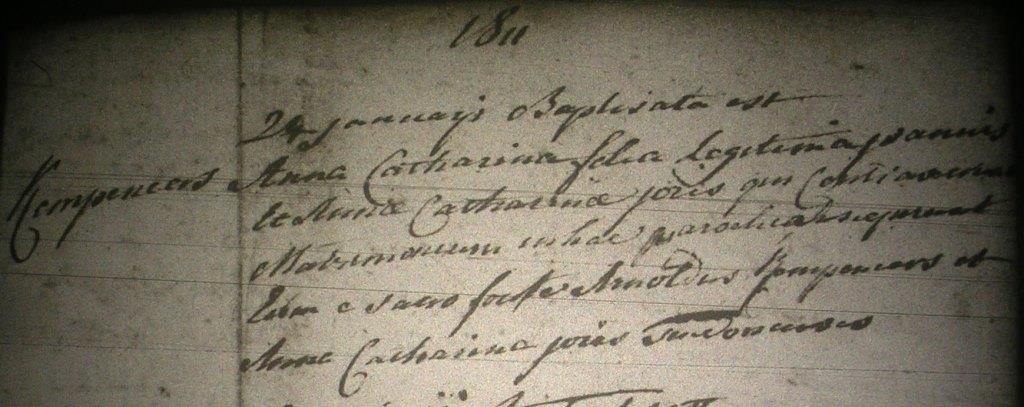 1811
24 januarij Baptisata est
Kempeneers Anna Catharina filia Legitima joannis
Et Anna Catharina joris qui Contraxerunt
Matrimonium in hac parochia
Eum e sacro fonte Arnoldus Kempeneers et
Anna Catharina joris